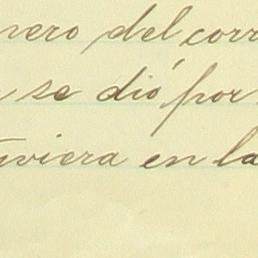 nero del corr
se dió por
uviera en la